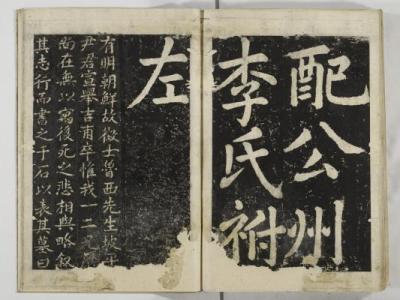 配公州
李氏祔
左
有明朝鮮故徵士魯西先生坡平
尹君宣擧吉甫卒惟我一二
尚在無以寫後死之悲相與略叙
其志行而書之于石以表其墓曰